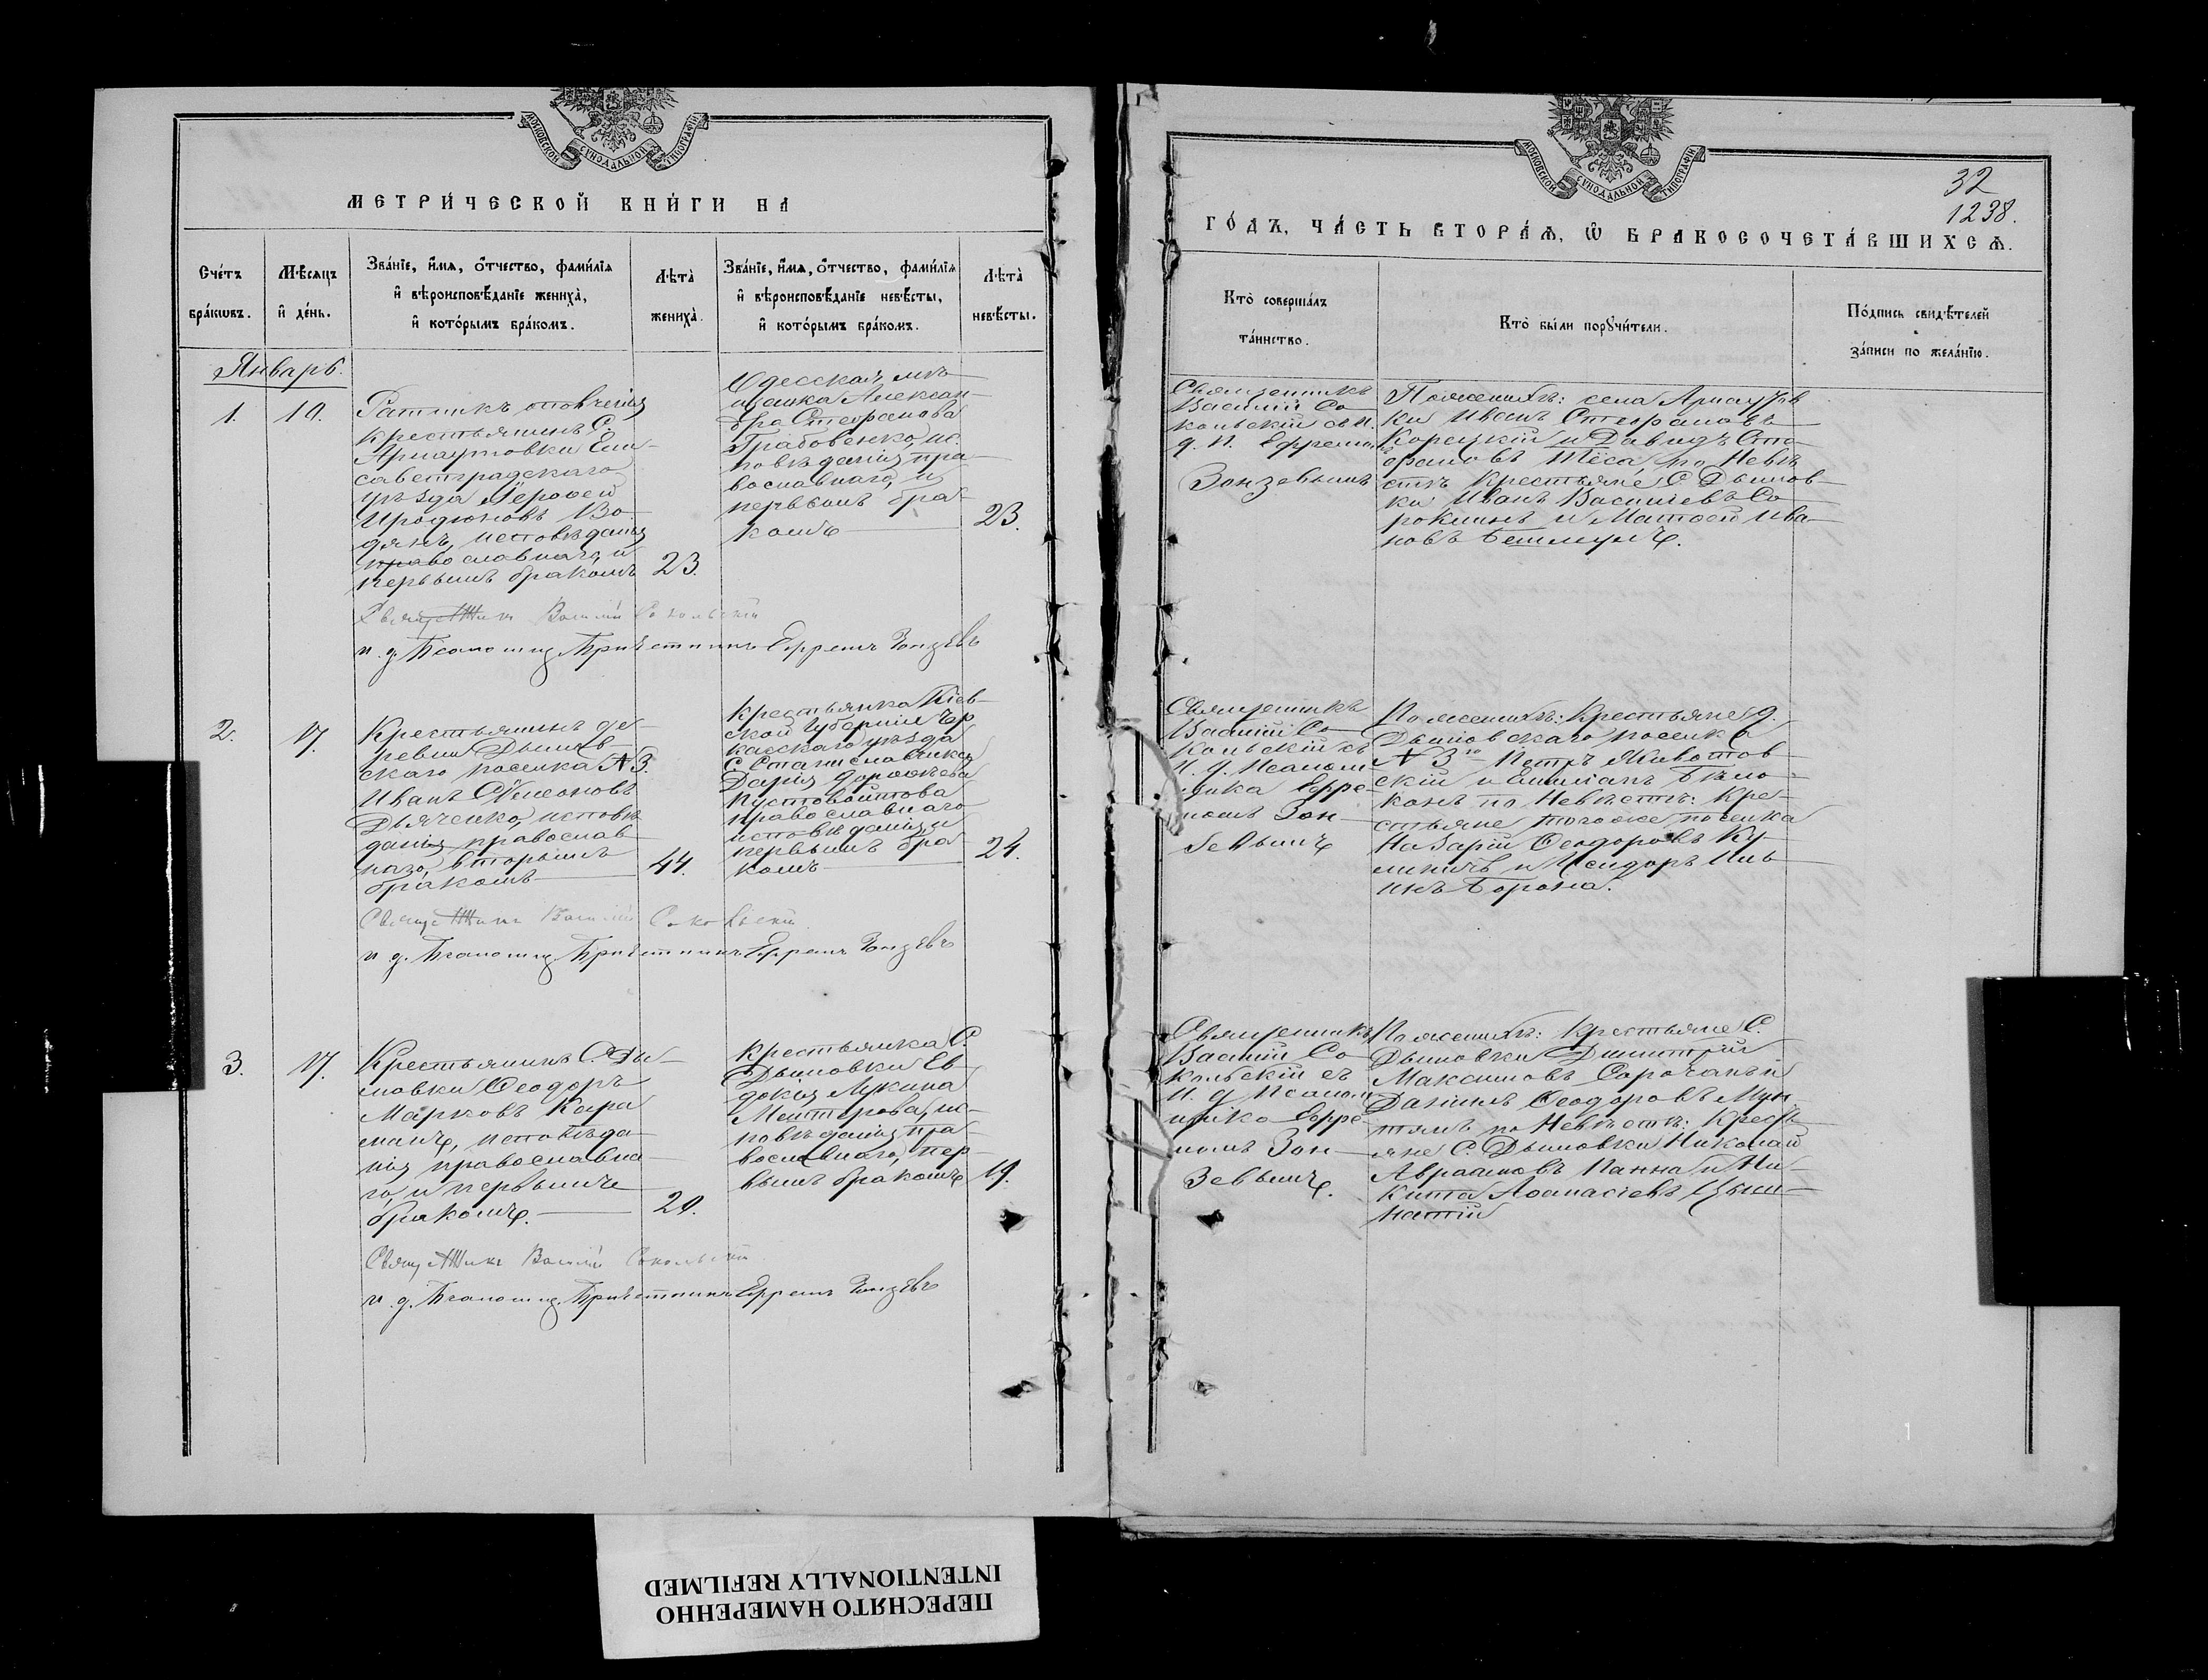 МОСКОВСКОЙ СУНОДАЛЬНОЙ ТИПОГРАФІИ
МЕТРИ́ЧЕСКОЙ КНИ́ГИ НА
Сче́тъ
бра́кωвъ.
Мѣ́сяцъ
и҆ де́нь.
Зва́нїе, и҆́мѧ, о҆́тчество, фами́лїѧ
и҆ вѣроисповѣ́данїе жениха̀,
и҆ кото́рымъ бра́комъ.
Лѣта̀
жениха̀.
Зва́нїе, и҆́мѧ, о҆́тчество, фами́лїѧ
и҆ вѣроисповѣ́данїе невѣ́сты,
и҆ кото́рымъ бра́комъ.
Лѣта̀
невѣ́сты.
Январь.
1.
10.
Ратникъ ополченія
крестьянинъ С.
Арнаутовки Ели-
саветградскаго
уѣзда Іерофей
Иродіоновъ Во-
дянъ, исповѣданія
православнаго, и
первымъ бракомъ
23.
Одесская мѣ-
щанка Алексан-
дра Стефанова
Грабовенко, ис-
повѣданія пра-
вославнаго, и
первымъ бра-
комъ
23.
Священникъ Василій Сокольскій
и. д. Псаломщ. Причетникъ Ефремъ Зонзевъ
2.
17.
Крестьянинъ де-
ревни Дымов-
скаго поселка №3.
Иванъ Симеоновъ
Дьяченко, исповѣ-
данія православ-
наго, вторымъ
бракомъ
44.
Крестьянка Кіев-
ской губерніи Чер-
касскаго уѣзда
С. Станиславчика
Дарія Дорофѣева
Пустовойтова
православнаго
исповѣданія, и
первымъ бра-
комъ
24.
Священникъ Василій Сокольскій
и. д. Псаломщ. Причетникъ Ефремъ Зонзевъ
3.
17.
Крестьянинъ С. Ды-
мовки Ѳеодоръ
Марковъ Кара-
манъ, исповѣда-
нія православна-
го, и первымъ
бракомъ.
20.
Крестьянка С.
Дымовки Ев-
докія Лукина
ис-
повѣданія пра-
вославнаго, пер-
вымъ бракомъ
19.
Священникъ Василій Сокольскій
и. д. Псаломщ. Причетникъ Ефремъ Зонзевъ
МОСКОВСКОЙ СУНОДАЛЬНОЙ ТИПОГРАФІИ
32
1238.
ГО́ДЪ, ЧА́СТЬ ВТОРА́Ѧ, Ѡ҆ БРАКОСОЧЕТА́ВШИХСѦ.
Кто̀ соверша́лъ
та́инство.
Кто̀ бы́ли порꙋчи́тели.
По́дпись свидѣ́телей
за́писи по жела́нїю.
Священникъ
Василій Со-
кольскій съ и.
д. п. Ефремомъ
Зонзевымъ
По женихѣ: села Арнаутов-
ки Иванъ Стефановъ
Корецкій и Давидъ Сте-
фановъ Тёса, по Невѣ-
стѣ Крестьяне С. Дымов-
ки Иванъ Васильевъ Со-
рокинъ и Матѳей Ива-
новъ
Священникъ
Василій Со-
кольскій съ
И. д. Псалом-
щика Ефре-
момъ Зон-
зевымъ
По женихѣ: Крестьяне д.
Дымовскаго поселка
№ 3го Петръ Животов-
скій и Емиліанъ Бѣло-
конъ по Невѣстѣ: Кре-
стьяне тогоже поселка
Назарій Ѳеодоровъ Ку-
линичъ и Исидоръ Иль-
инъ Борона.
Священникъ
Василій Со-
кольскій съ
И. д. Псалом-
щика Ефре-
момъ Зон-
зевымъ.
По женихѣ: Крестьяне С.
Дымовки Димитрій
Максимовъ Сорочанъ и
Даніилъ Ѳеодоровъ Мун-
тянъ по Невѣстѣ: Кресть-
яне С. Дымовки Николай
Аврамовъ Панна и Ни-
кита Аѳанасіевъ
ПЕРЕСНЯТО НАМЕРЕННО
INTENTIONALLY REFILMED